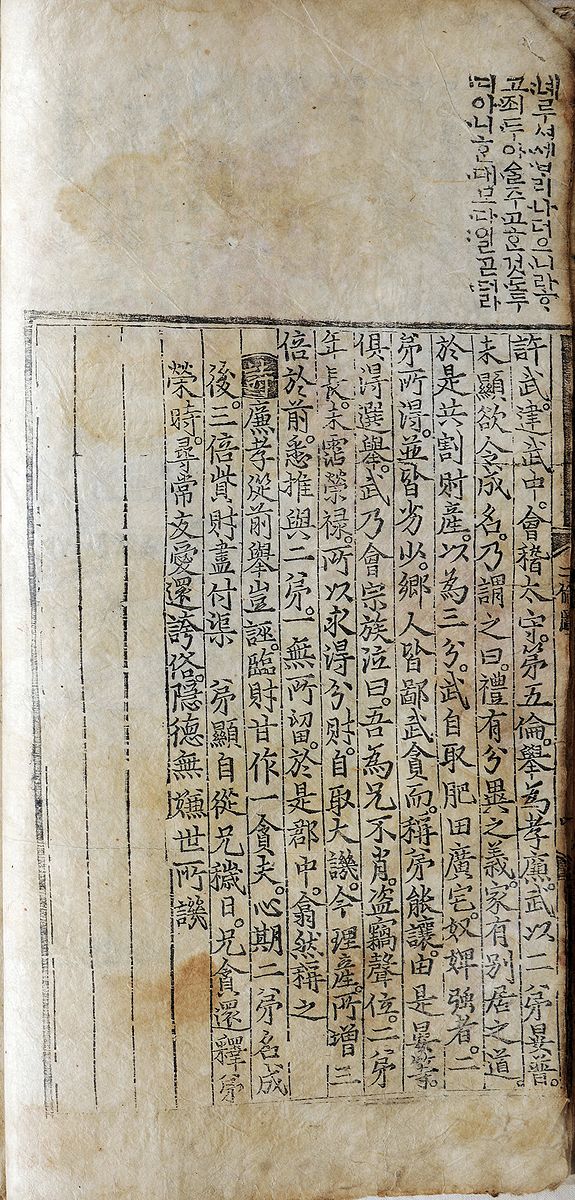 녜루셔세ᄇᆞ리나더으니라ᄒᆞ
고죄두아ᅀᆞ주고ᄒᆞᆫ것도두
디아니ᄒᆞᆫ대모다일ᄏᆞᆮ더라
許武。建武中。會稽太守。第五倫。舉為孝廉。武以二弟晏普。
未顯欲令成名。乃謂之曰。禮有分異之義。家有別居之道。
於是共割財產。以為三分。武自取肥田廣宅。奴婢强者。二
弟所得。並皆劣少。鄉人皆鄙武貪而。稱弟能讓。由是晏等。
俱得選舉。武乃會宗族泣曰。吾為兄不肖。盜竊聲位。二弟
年長。未霑榮祿。所以求得分財。自取大譏。今理產。所增三
倍於前。悉推與二弟。一無所留。於是郡中。翕然稱之
詩 廉孝從前舉豈誣。臨財甘作一貪夫。心期二弟名成
後。三倍貲財盡付渠 弟顯自從兄穢日。兄貪還釋弟
榮時。尋常友愛還誇俗。隱德無嫌世所譏